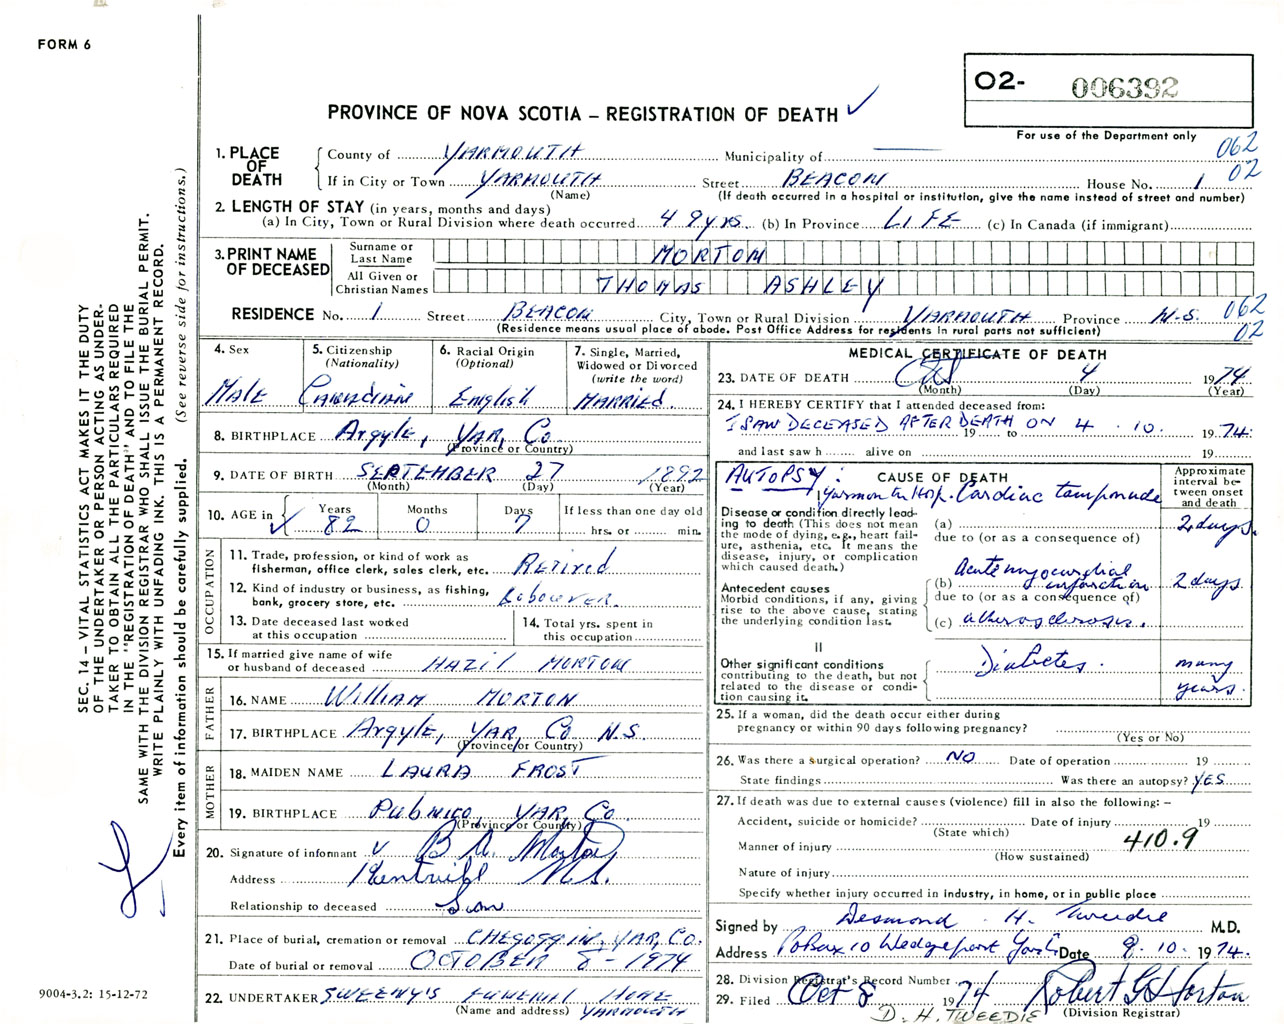 FORM 6
O2- 006392
PROVINCE OF NOVA SCOTIA – REGISTRATION OF DEATH ✓
For use of the Department only
062
02
1. PLACE OF DEATH
County of YARMOUTH Municipality of
If in City or Town YARMOUTH Street BEACON House No. 1
(Name) (If death occurred in a hospital or institution, give the name instead of street and number)
2. LENGTH OF STAY (in years, months and days)
(a) In City, Town or Rural Division where death occurred 49 yrs. (b) In Province LIFE (c) In Canada (if immigrant)
3. PRINT NAME OF DECEASED
Surname or Last Name MORTON
All Given or Christian Names THOMAS ASHLEY
RESIDENCE No. 1 Street BEACON City, Town or Rural Division YARMOUTH Province N.S. 062
02
(Residence means usual place of abode. Post Office Address for residents in rural parts not sufficient)
4. Sex
Male
5. Citizenship
(Nationality)
6. Racial Origin
(Optional)
English
7. Single, Married,
Widowed or Divorced
(write the word)
MARRIED.
8. BIRTHPLACE Argyle, YAR, Co
(Province or Country)
9. DATE OF BIRTH SEPTEMBER 27 1892
(Month) (Day) (Year)
10. AGE in ✓
Years Months Days If less than one day old
82 0 7 hrs. or min.
OCCUPATION
11. Trade, profession, or kind of work as
fisherman, office clerk, sales clerk, etc. Retired
12. Kind of industry or business, as fishing,
bank, grocery store, etc.
13. Date deceased last worked
at this occupation
14. Total yrs. spent in
this occupation
15. If married give name of wife
or husband of deceased HAZIL MORTON
FATHER
16. NAME William MORTON
17. BIRTHPLACE Argyle, YAR, Co N.S.
(Province or Country)
MOTHER
18. MAIDEN NAME LAURA FROST
19. BIRTHPLACE Pubnico, YAR, Co.
(Province or Country)
20. Signature of informant ✓ B A Morton
Address N.S.
Relationship to deceased Son
21. Place of burial, cremation or removal CHEGOGGIN, YAR, CO.
Date of burial or removal OCTOBER 8 - 1974
22. UNDERTAKER SWEENY'S FUNERAL HOME
(Name and address) YARMOUTH
MEDICAL CERTIFICATE OF DEATH
23. DATE OF DEATH Oct 4 1974
(Month) (Day) (Year)
24. I HEREBY CERTIFY that I attended deceased from:
I SAW DECEASED AFTER DEATH ON 4 . 10. 1974.
19 to 19
and last saw h alive on 19
AUTOPSY: CAUSE OF DEATH
Yarmouth Hosp. Cardiac tamponade
Approximate interval between onset and death
Disease or condition directly leading to death (This does not mean the mode of dying, e.g., heart failure, asthenia, etc. It means the disease, injury, or complication which caused death.)
(a) 2 days.
due to (or as a consequence of)
Acute myocardial
(b) infarction 2 days.
due to (or as a consequence of)
Antecedent causes
Morbid conditions, if any, giving rise to the above cause, stating the underlying condition last.
(c) atherosclerosis.
II
Other significant conditions contributing to the death, but not related to the disease or condition causing it.
Diabetes. many
years.
25. If a woman, did the death occur either during
pregnancy or within 90 days following pregnancy?
(Yes or No)
26. Was there a surgical operation? NO Date of operation 19
State findings Was there an autopsy? YES
27. If death was due to external causes (violence) fill in also the following: –
Accident, suicide or homicide? Date of injury 19
(State which)
Manner of injury 410.9
(How sustained)
Nature of injury
Specify whether injury occurred in industry, in home, or in public place
Signed by Desmond . H. Tweedie M.D.
Address PO Box 10 Wedgeport Date 8. 10. 1974.
28. Division Registrar's Record Number
29. Filed Oct 8 1974 Robert G Horton
(Division Registrar)
D. H. TWEEDIE
SEC. 14 – VITAL STATISTICS ACT MAKES IT THE DUTY
OF THE UNDERTAKER OR PERSON ACTING AS UNDER-
TAKER TO OBTAIN ALL THE PARTICULARS REQUIRED
IN THE "REGISTRATION OF DEATH" AND TO FILE THE
SAME WITH THE DIVISION REGISTRAR WHO SHALL ISSUE THE BURIAL PERMIT.
WRITE PLAINLY WITH UNFADING INK. THIS IS A PERMANENT RECORD.
Every item of information should be carefully supplied. (See reverse side for instructions.)
9004-3.2: 15-12-72